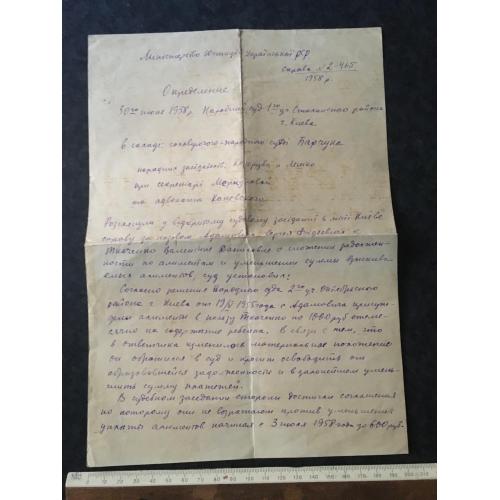 Министерство Юстиції Української РСР
справа № 2-465
1958 р.
Определение
30го июня 1958 р. Народний суд 1го уч. Сталинского района
г. Киева
в складе: головуючого-народного судді Барчука
народних засідателів: и Ленко
при секретарі
та адвоката Каневского
Розглянула у відкритому судовому засіданні в місті Києві
справу за позовом Адамовича Сергея к
Ткаченко Валентине о сложении задолжен-
ности по алиментам и уменьшении суммы взыскива-
емых алиментов, суд установил:
Согласно решения Народного суда 2го уч. Октябрьского
района г. Киева от 1955 года с Адамовича присуж-
дены алименты в пользу Ткаченко по руб ежеме-
сячно на содержание ребенка. В связи с тем, что
в ответчика изменилось материальное положение
он обратился в суд и просит освободить от
образовавшейся задолженности и в дальнейшем умень-
шить сумму платежей.
В судебном заседании стороны достигли соглашения
по которому они не возражают против уменьшения
уплаты алиментов начиная с 3 июля 1958 года до 600 руб.